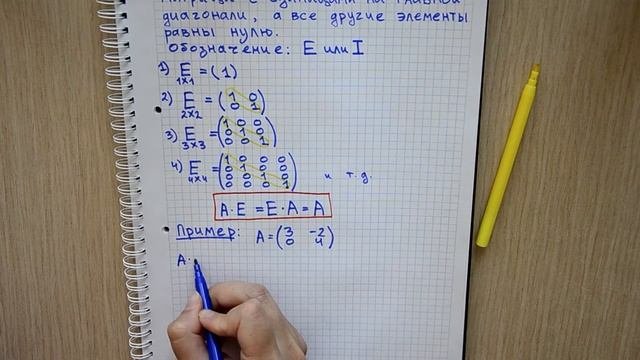 матрица с единицами на главной
диагонали, а все другие элементы
равны нулю.
Обозначение: E или I
1) E 1x1 = (1)
2) E 2x2 = (1 0
0 1)
3) E 3x3 = (1 0 0
0 1 0
0 0 1)
4) E 4x4 = (1 0 0 0
0 1 0 0
0 0 1 0
0 0 0 1) и т.д.
A·E = E·A = A
Пример: A = (3 -2
0 4)
A·